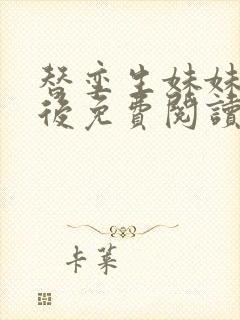 替孿生妹妹
後免費閱讀
卡萊